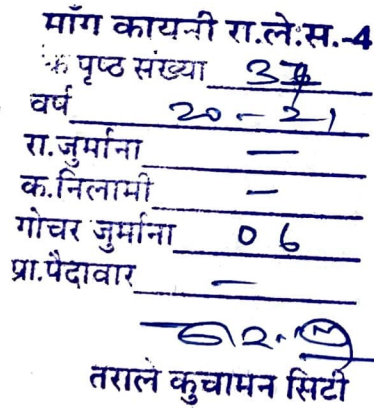 माँग कायनी रा.ले.स.-4
क पृष्ठ संख्या
वर्ष 20-21
रा.जुर्माना —
क.निलामी —
गोचर जुर्माना 06
प्रा.पैदावार —
तराले कुचामन सिटी